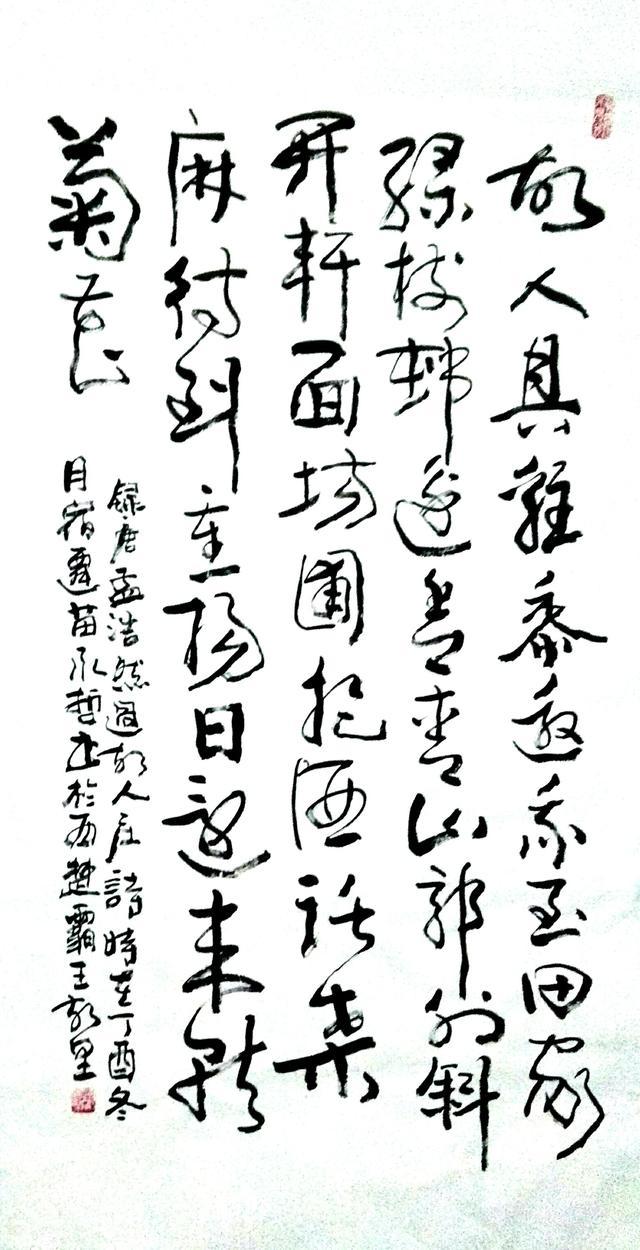 故人具雞黍邀我至田家
綠樹邨邊合青山郭外斜
開軒面場圃把酒話桑
麻待到重陽日還來就
菊花
錄唐孟浩然過故人庄詩時在丁酉冬
月宿遷苗永哲書於西楚霸王故里